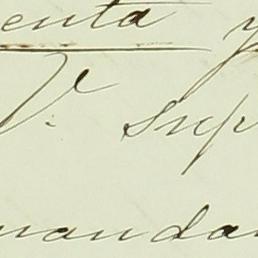 enta y
V.e sup
mandan